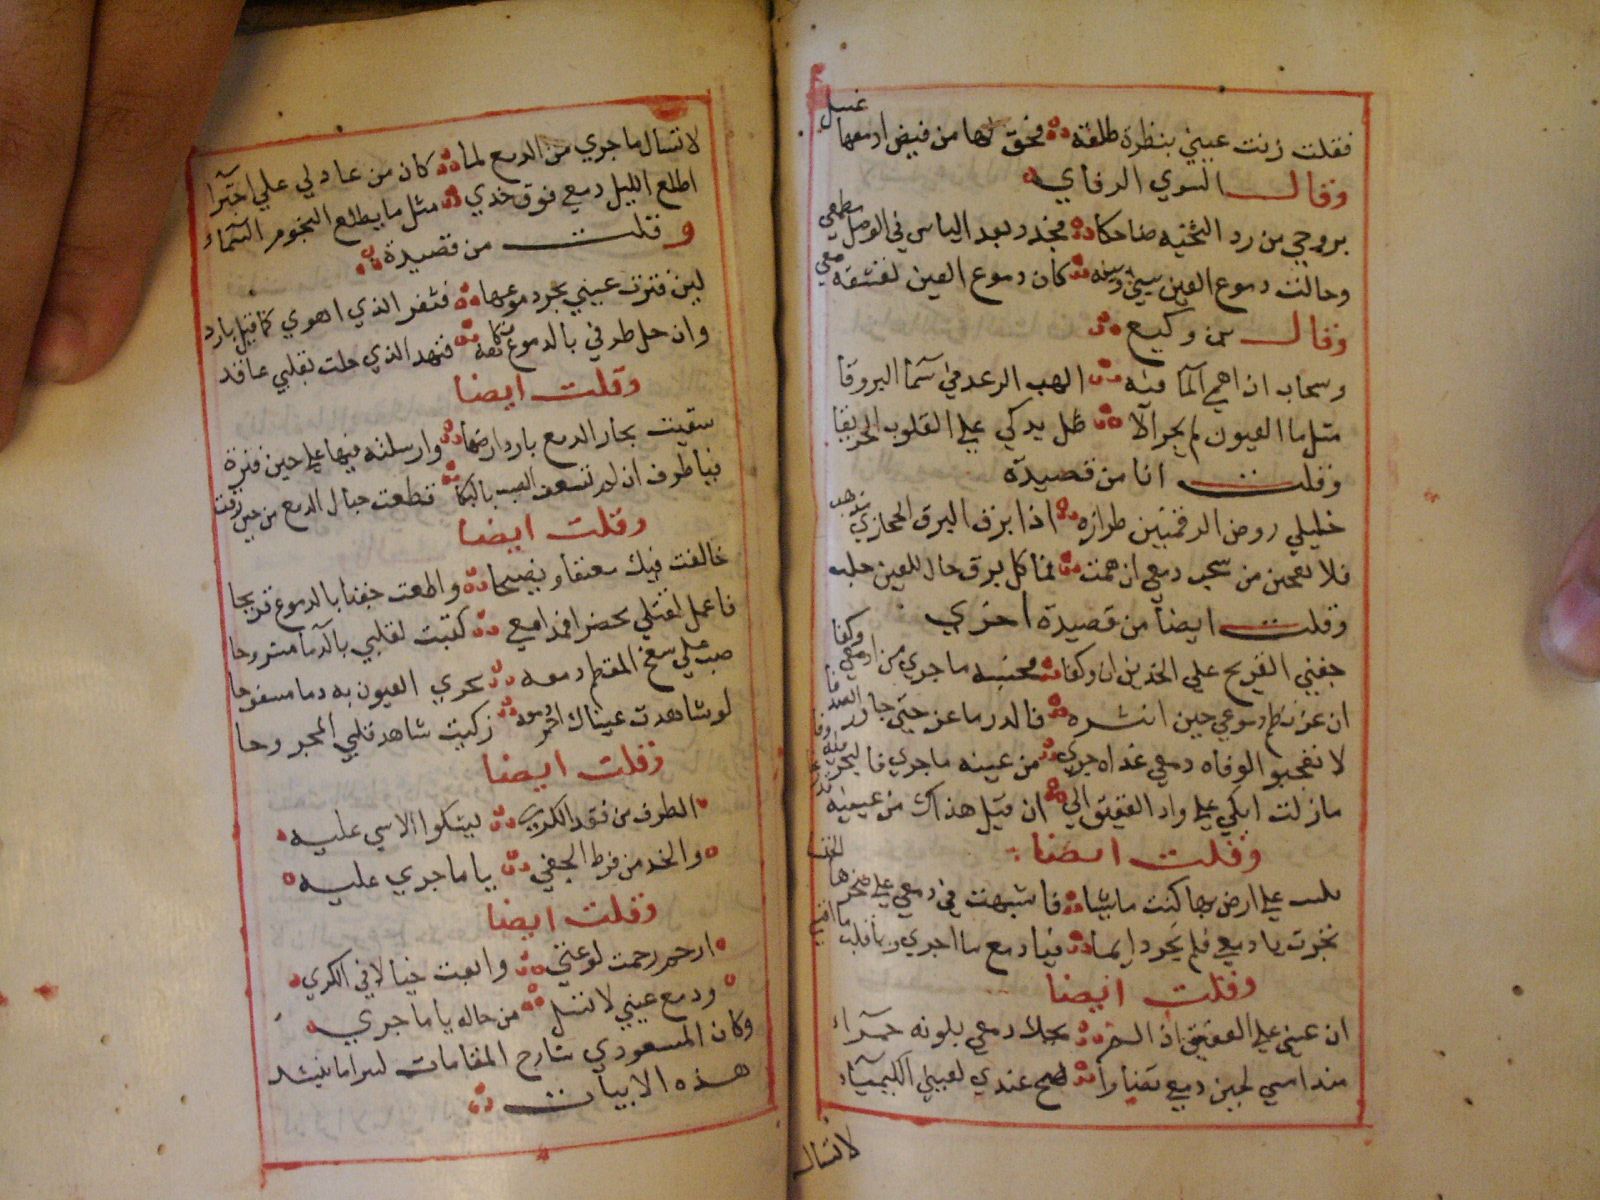 فقلت زنت عيني بنظرة طلقة فحق لها من فيض ادمعها غسل
وقال السوي الرفاي
بروحي من رد التحيه ضاحكا فجدد بعد الياس في الوصل مطمعي
وحالت دموع العين بيني وبينه كان دموع العين تعشقه معي
وقال بن وكيع
وسحاب اذا همي الما فيه الهب الرعد في سما البروقا
مثل ما العيون لم يجر الا ظل يدكي علي القلوب الحريقا
وقلت انا من قصيدة
خليلي روض الرقمتين طرازه اذا بزق البرق الحجازي مذهب
فلا تعجبن من سحب دمعي ان همت فما كل برق خال للعين خلب
وقلت ايضا من قصيدة اخري
جفني القريح علي الخدين ان وكفا فحسبه ما جري من ادمعي وكفا
ان عز نظم دموعي حين انثره فالدر ما عز حتي جاور الصدفا
لا تعجبو الوفاه دمعي غداه جري من عينه ما جري فالبحر
مازلت ابكي علي واد العقيق الي ان قيل هذاك من عينيه
وقلت ايضا
علي ارض بها كنت ماشيا فاشبهت في دمعي علي صخرها
يا دمعي فلم تجر دايما فيا دمع ما اجري ويا قلب ما
وقلت ايضا
ان عيني علي العقيق اذا دمعي بلونه حمراء
مذ امسي لجين دمعي نضارا صح عندي لعيني الكيمياء
لا تسال
لا تسال ما جري من الدمع لما كان من عادلي علي اجترا
اطلع الليل دمعي فوق خدي مثل ما يطلع النجوم السماء
وقلت من قصيدة
لين فترت عيني بجر دموعها فثغر الذي اهوي كما قيل بارد
وان حل طرفي بالدموع نكاته فنهد الذي حلت بقلبي عاقد
وقلت ايضا
سقيت بحار الدمع بارد ارضها وارسلته فيها علي حين فترة
فيا طرف ان لم تسعف الصب بالبكا قطعت حبال الدمع من حين
وقلت ايضا
خالفت فيك معنفا ونصيحا واطعت جفنا بالدموع قريحا
فاعمل لقتلي محضرا فمدامعي كتبت لقلبي بالدما مشروحا
صب علي سفح المقطم دمعه يجري العيون به دما مسفوحا
لو شاهدت عيناك احمر دمعه زكيت شاهد قلبي المجروحا
وقلت ايضا
الطرف من فقد الكري ليشكوا الاسي عليه
والخد من فرط الجفي يا ما جري عليه
وقلت ايضا
ارحم رحمت لوعتي وابعث خيالا في الكري
ودمع عيني لا تسل من حاله يا ما جري
وكان المسعودي شارح المقامات ما ينشد
هذه الابيات